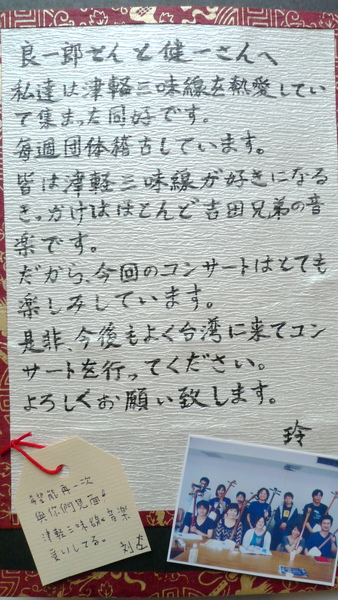 良一郎さんと健一さんへ
私達は津軽三味線を熱愛してい
て集まった同好です。
毎週団体稽古しています。
皆は津軽三味線が好きになる
きっかけはほとんど吉田兄弟の音
楽です。
だから、今回のコンサートはとても
楽しみしています。
是非、今後もよく台湾に来てコン
サートを行ってください。
よろしくお願い致します。
玲
希望能再一次
與你們見面。
津軽三味線の音楽
愛してる。